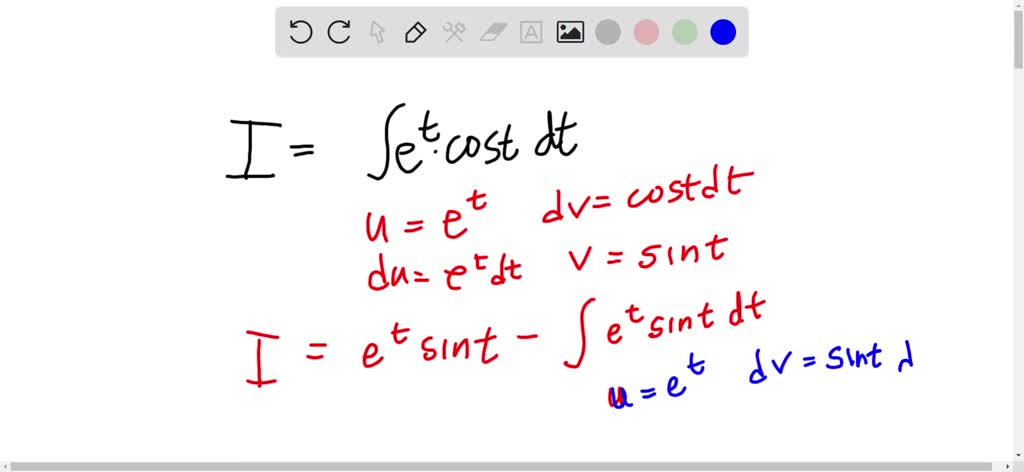 I = ∫e^t·cost dt
u = e^t dv = costdt
du = e^t dt v = sint
I = e^t sint - ∫e^t sint dt
u = e^t dv = sint d